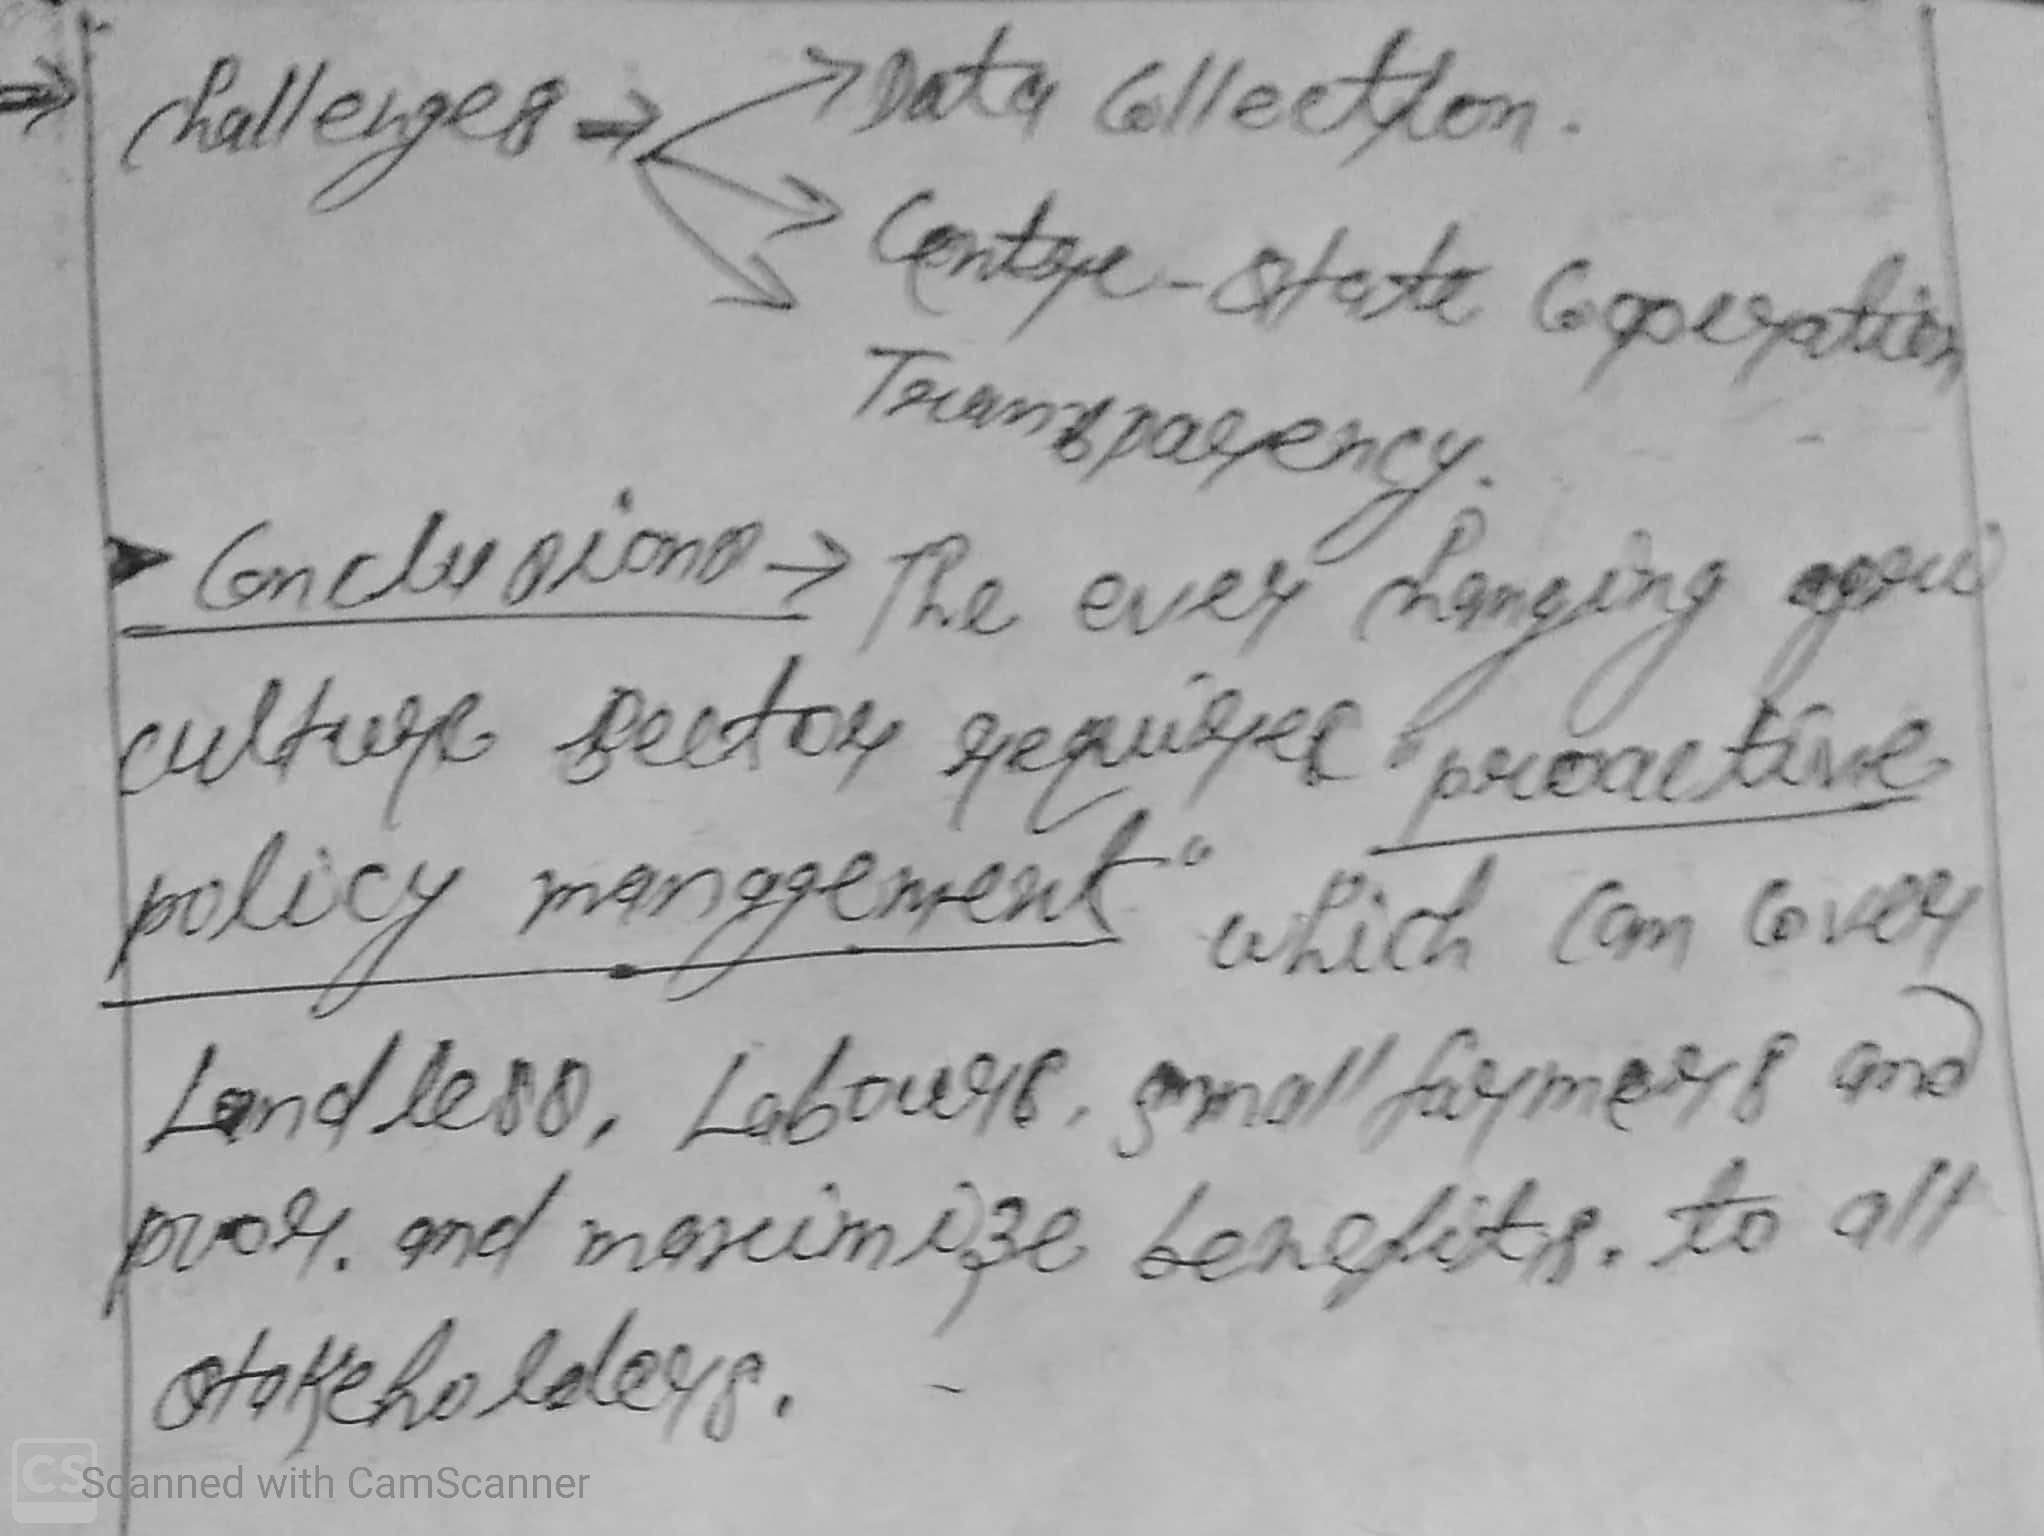 ⇒ Challenges → → Data Collection.
→ Centre-State Cooperation
→ Transparency.
➤ Conclusions → The ever changing agri
culture sector requires "proactive
policy management" which can cover
Landless, Labours, small farmers and
poor. and maximize benefits. to all
stakeholders.
CS Scanned with CamScanner